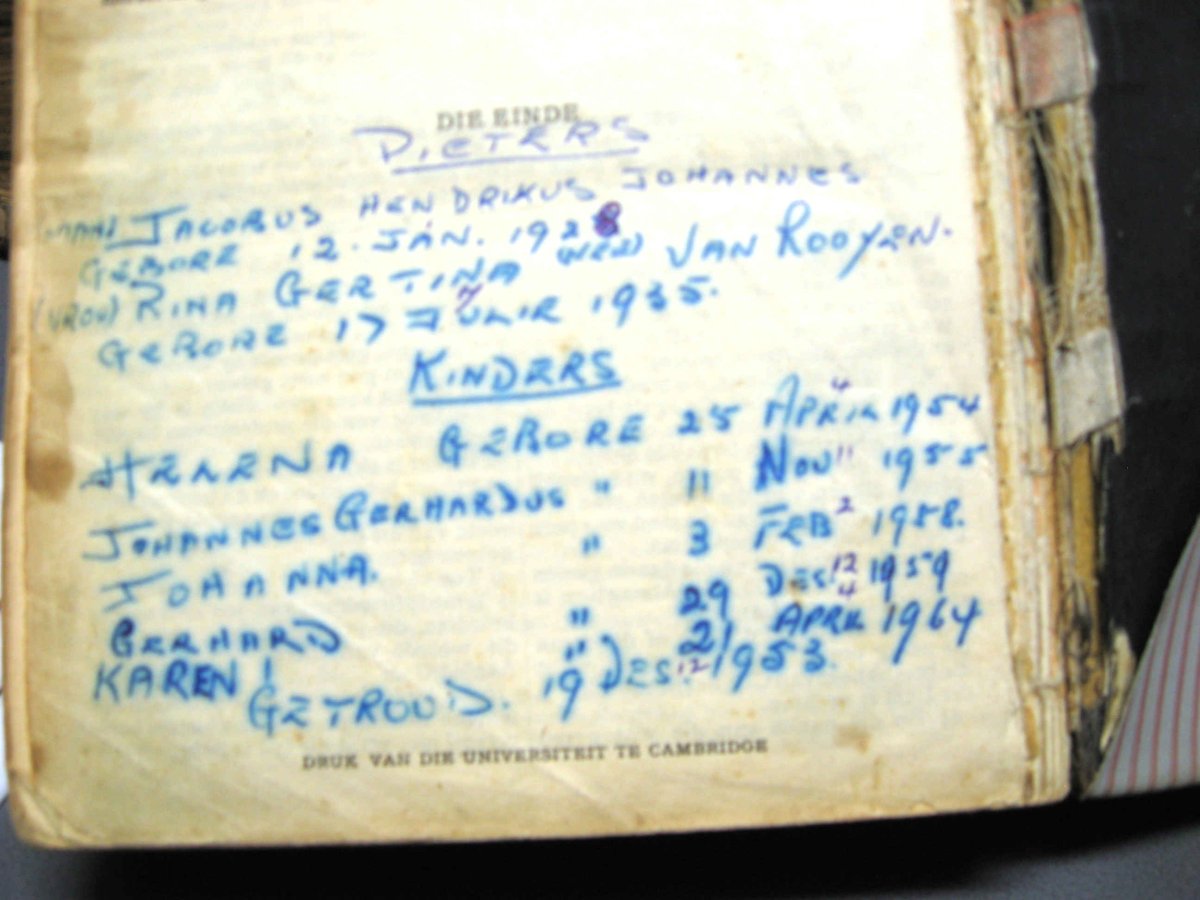 DIE EINDE
PIETERS
(MAN) JACOBUS HENDRIKUS JOHANNES
GEBORE 12. JAN. 1928
(VROU) RINA GERTINA JAN ROOYEN.
GEBORE 17 JULIE 1935.
KINDERS
HELENA GEBORE 25 APRIL 4 1954
JOHANNES GERHARDUS " 11 NOV 11 1955
JOHANNA. " 3 FEB 2 1958.
GERHARD " 29 DES. 12 1959
KAREN " 21 APRIL 4 1964
GETROUD. 19 DES. 12 1953.
DRUK VAN DIE UNIVERSITEIT TE CAMBRIDGE